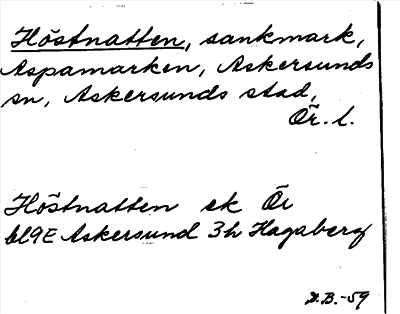 Höstnatten, sankmark,
Aspamarken, Askersunds
sn, Askersunds stad,
Ör. l.
Höstnatten ek Ör
bl9E Askersund 3h Hagaberg
D.B.-59